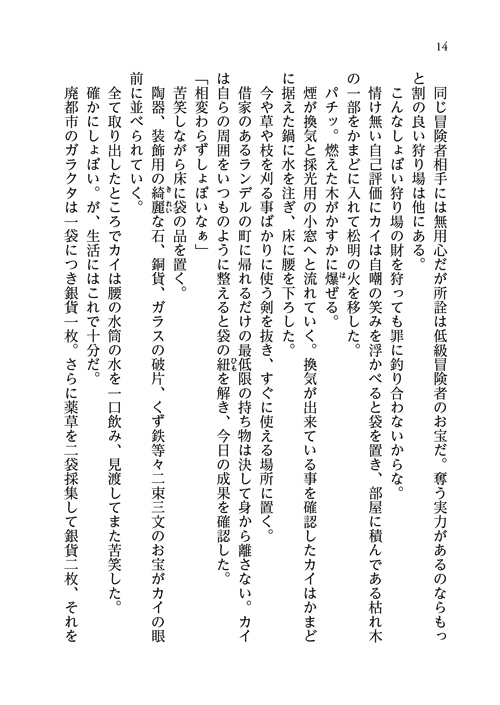 14
同じ冒険者相手には無用心だが所詮は低級冒険者のお宝だ。奪う実力があるのならもっ
と割の良い狩り場は他にある。
こんなしょぼい狩り場の財を狩っても罪に釣り合わないからな。
情け無い自己評価にカイは自嘲の笑みを浮かべると袋を置き、部屋に積んである枯れ木
の一部をかまどに入れて松明の火を移した。
パチッ。燃えた木がかすかに爆ぜる。
煙が換気と採光用の小窓へと流れていく。換気が出来ている事を確認したカイはかまど
に据えた鍋に水を注ぎ、床に腰を下ろした。
今や草や枝を刈る事ばかりに使う剣を抜き、すぐに使える場所に置く。
借家のあるランデルの町に帰れるだけの最低限の持ち物は決して身から離さない。カイ
は自らの周囲をいつものように整えると袋の紐を解き、今日の成果を確認した。
「相変わらずしょぼいなぁ」
苦笑しながら床に袋の品を置く。
陶器、装飾用の綺麗な石、銅貨、ガラスの破片、くず鉄等々二束三文のお宝がカイの眼
前に並べられていく。
全て取り出したところでカイは腰の水筒の水を一口飲み、見渡してまた苦笑した。
確かにしょぼい。が、生活にはこれで十分だ。
廃都市のガラクタは一袋につき銀貨一枚。さらに薬草を二袋採集して銀貨二枚、それを